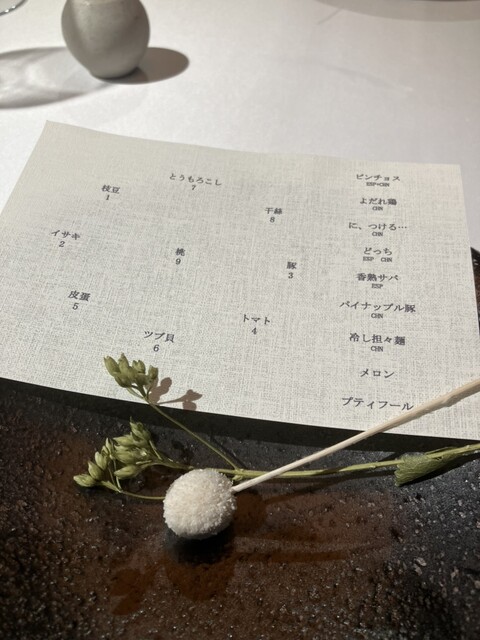 とうもろこし
7
枝豆
1
干蘇
8
イサキ
2
桃
9
豚
3
皮蛋
5
トマト
4
ツブ貝
6
ピンチョス
ESP×CHN
よだれ鶏
CHN
に、つける…
CHN
どっち
ESP CHN
香熟サバ
ESP
パイナップル豚
CHN
冷し担々麺
CHN
メロン
プティフール